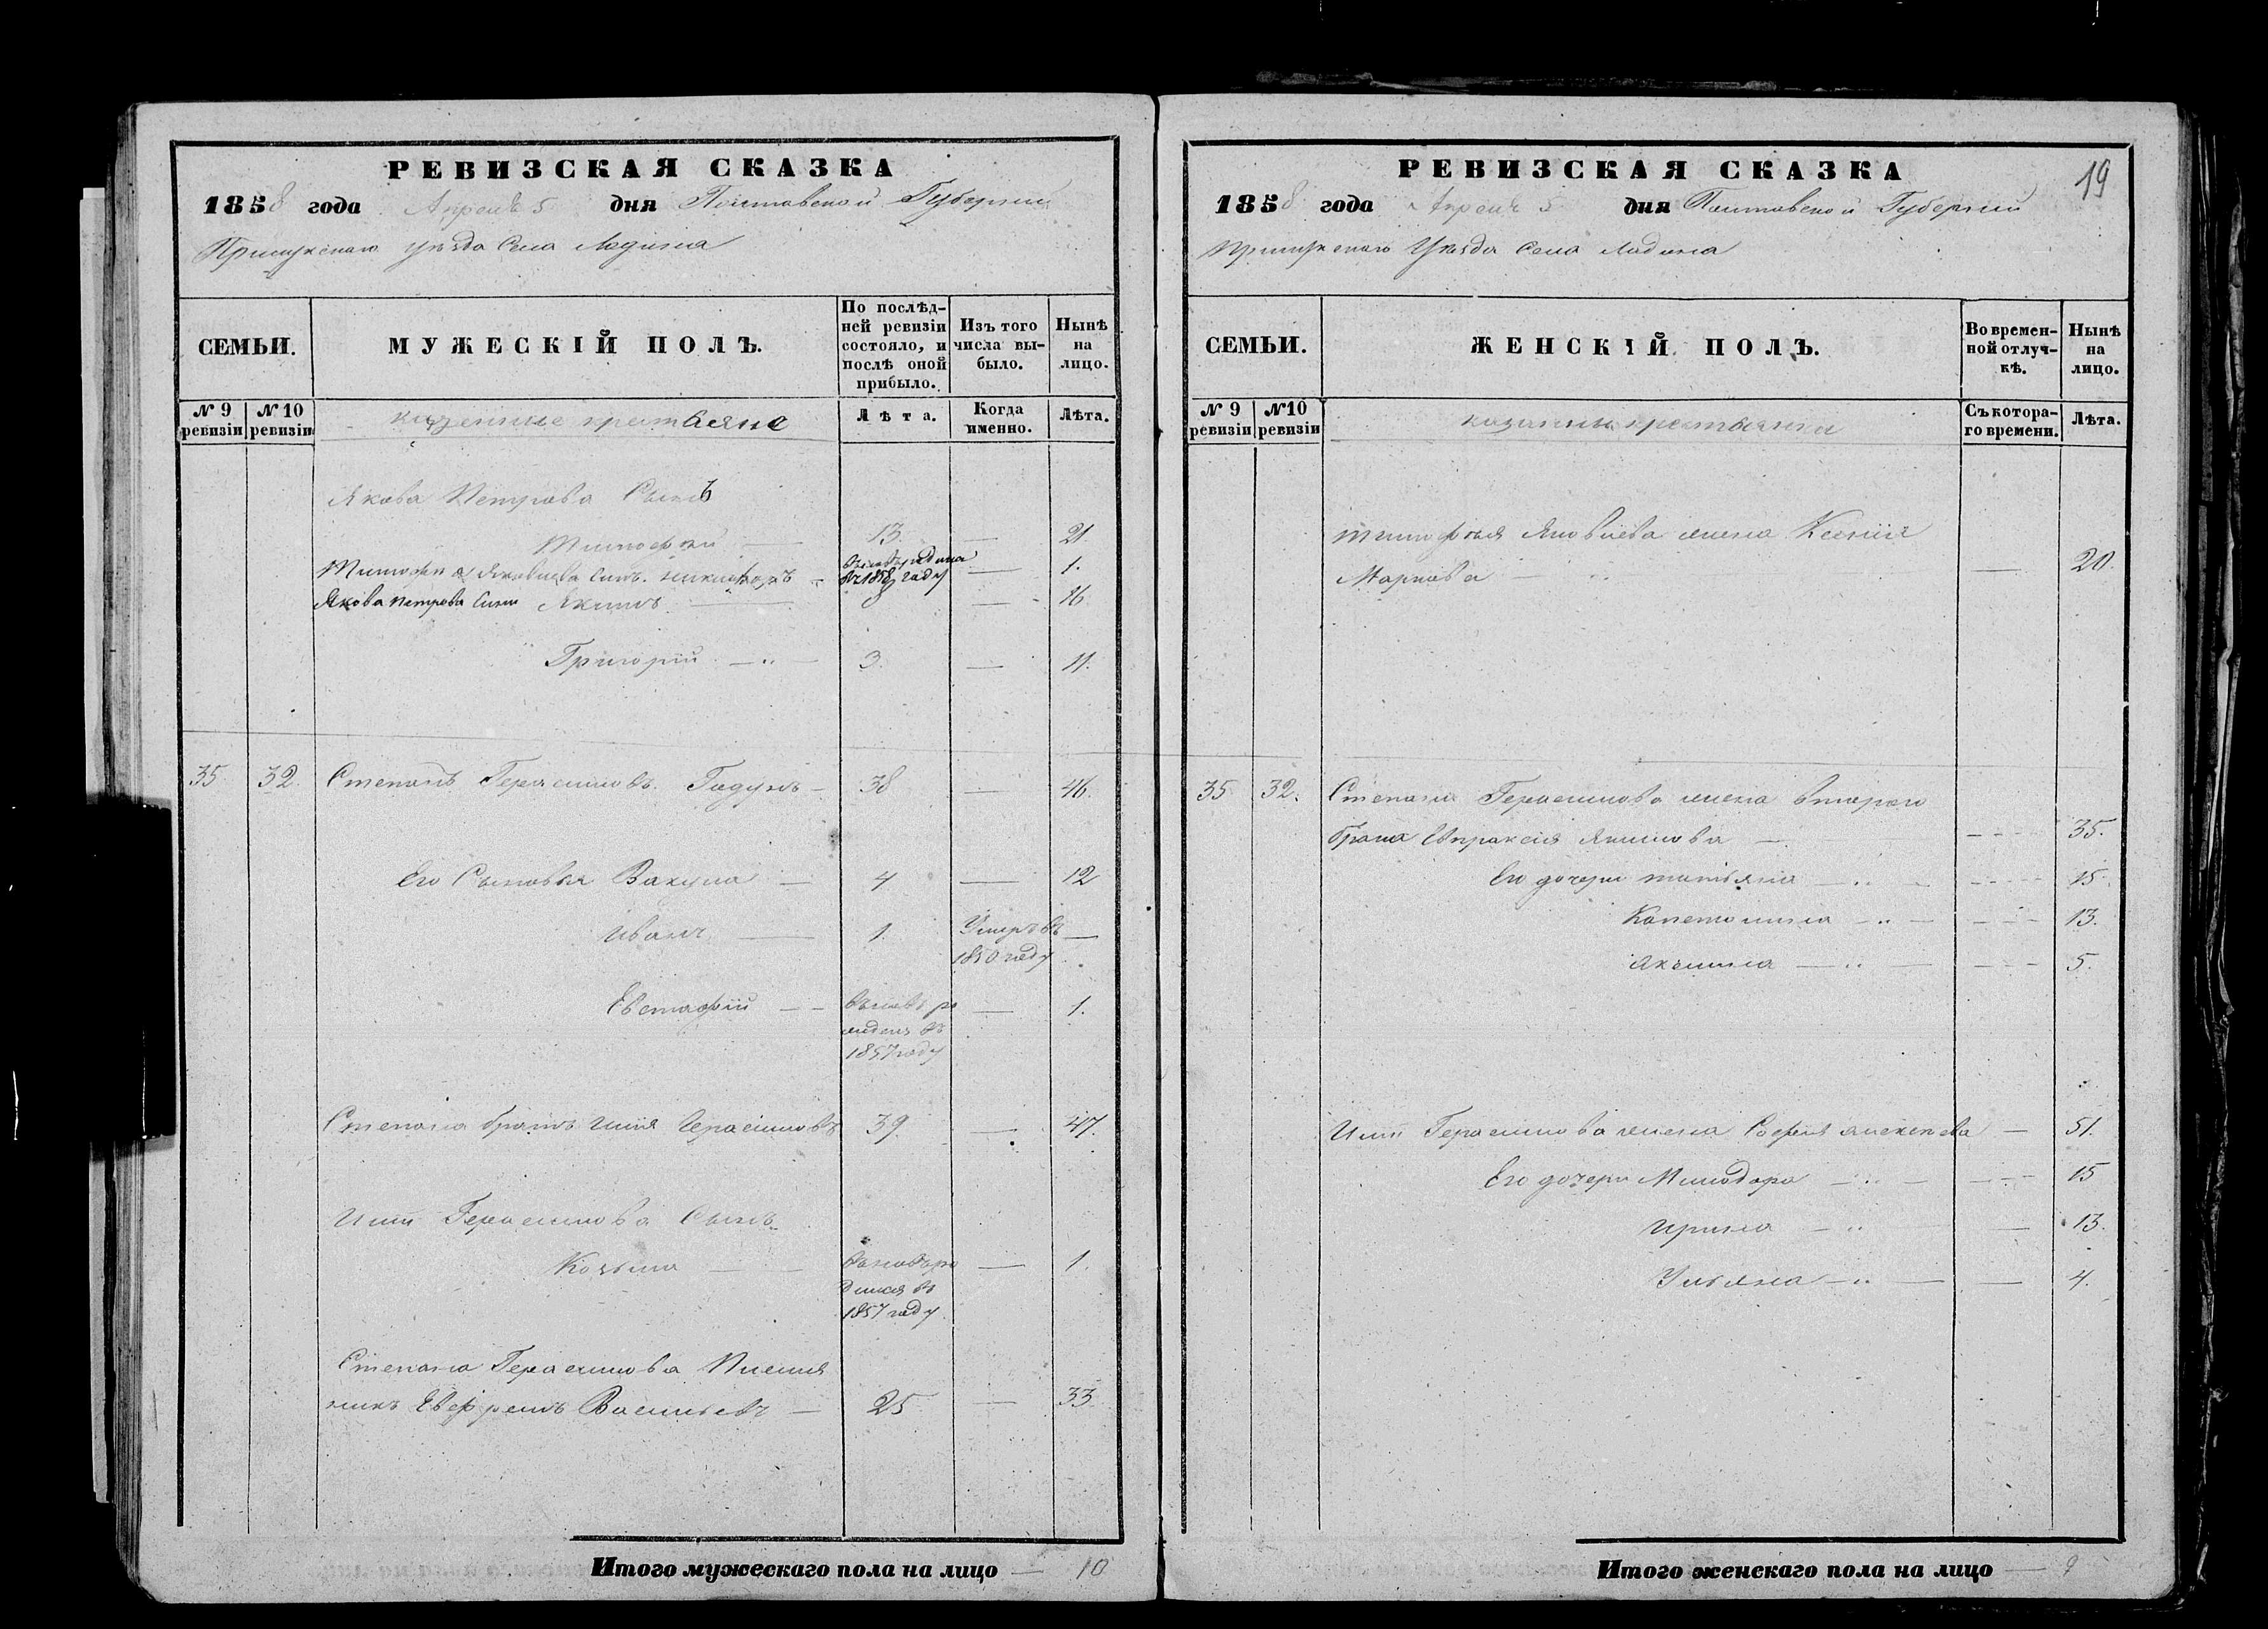 РЕВИЗСКАЯ СКАЗКА
1858 года Апреля 5 дня Полтавской Губернии
Прилукского уезда Села Ладина
СЕМЬИ.
МУЖЕСКІЙ ПОЛЪ.
По послѣд-
ней ревизіи
состояло, и
послѣ оной
прибыло.
Изъ того
числа вы-
было.
Нынѣ
на
лицо.
№ 9
ревизіи
№ 10
ревизіи
казенные крестьяне
Лѣта.
Когда
именно.
Лѣта.
Якова Петрова Сынъ
Тимофей — 13. — 21
Тимофея Яковлева Сынъ Никифоръ — въ 1858 году — 1.
Якова Петрова Сыны Якимъ — 8 — 16
Григорій — 3. — 11.
35 32 Степанъ Герасимовъ Гадунъ — 38 — 46.
Его Сыновья Вакула — 4 — 12
Иванъ — 1. Умръ въ —
1850 году
Евстафій — вновь ро — 1.
жденъ въ
1857 году
Степана братъ Илія Герасимовъ 39 — 47.
Иліи Герасимова Сынъ
Козьма — вновь ро — 1.
дился въ
1857 году
Степана Герасимова Племя
никъ Евфремъ Васильевъ — 25 — 33
Итого мужескаго пола на лицо — 10
19
РЕВИЗСКАЯ СКАЗКА
1858 года Апреля 5 дня Полтавской Губернии
Прилукского Уезда Села Ладина
СЕМЬИ.
ЖЕНСКІЙ ПОЛЪ.
Во времен-
ной отлуч-
кѣ.
Нынѣ
на
лицо.
№ 9
ревизіи
№ 10
ревизіи
казенные крестьянки
Съ котора-
го времени.
Лѣта.
Тимофея Яковлева жена Ксенія
Маркова — — 20.
35 32. Степана Герасимова жена втораго
брака Евпраксія Якимова — 35.
Его дочери татьяна — 15.
Капетолина — 13.
акилина — 5.
Иліи Герасимова жена Софія алексеева — 51.
Его дочери Минодора — 15
ирина — 13.
Ульяна — 4.
Итого женскаго пола на лицо — 9